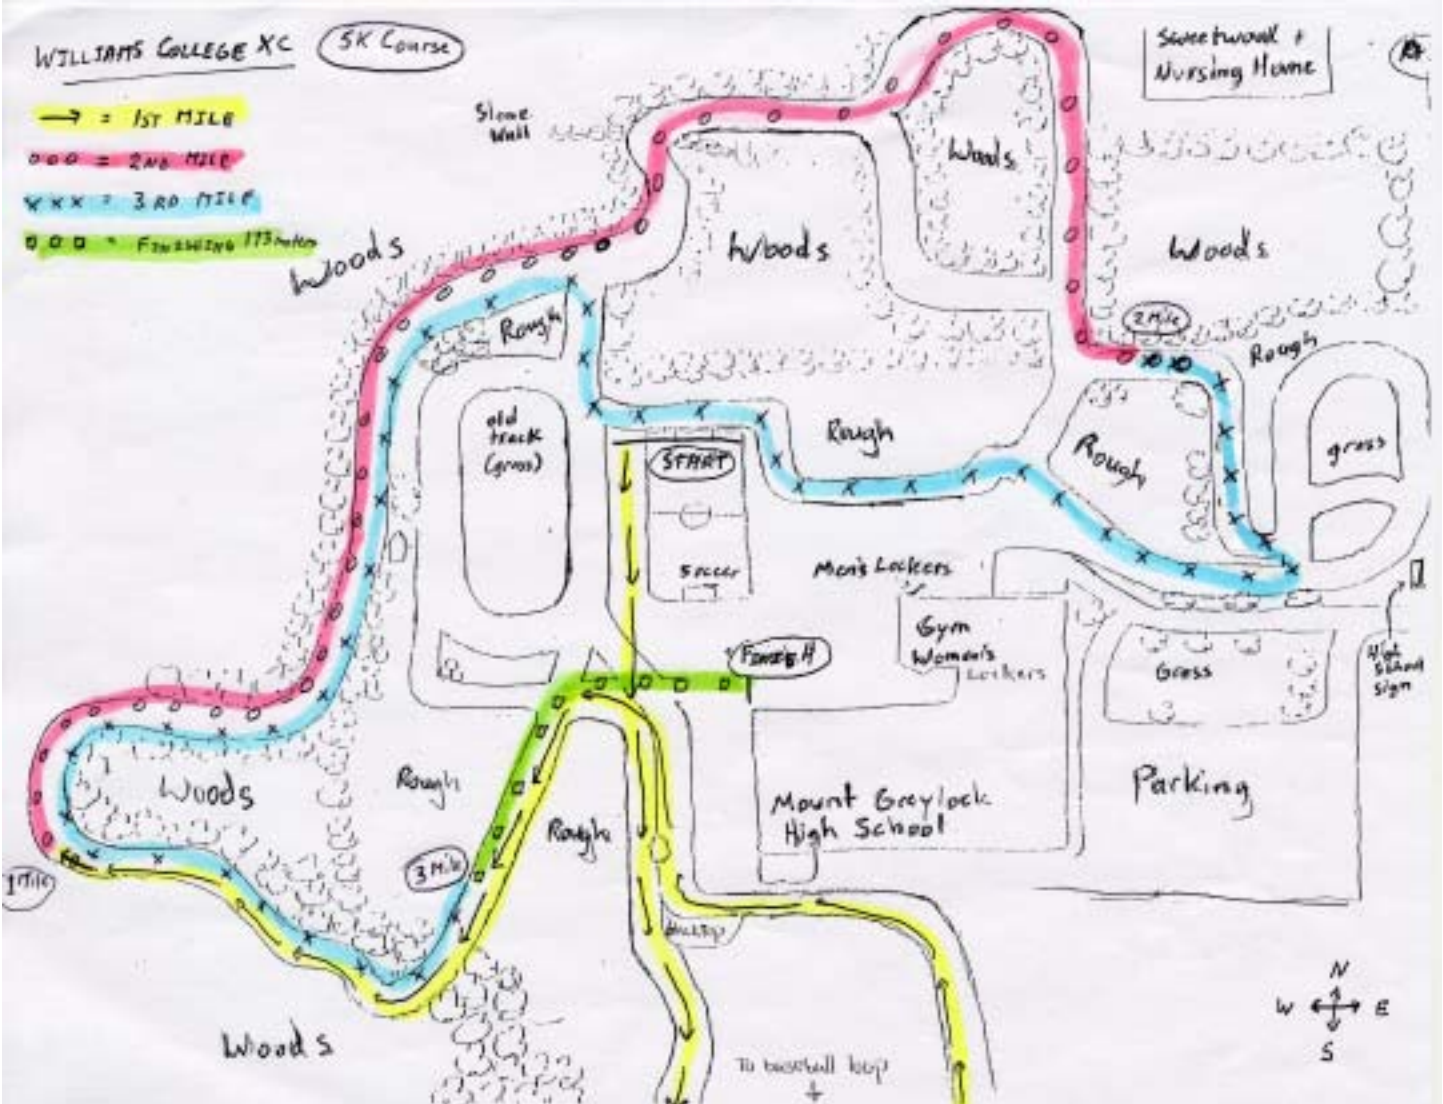 WILLIAMS COLLEGE XC
5K Course
→ = 1ST MILE
ooo = 2ND MILE
xxx = 3RD MILE
□□□ = FINISHING 173 meters
Sweetwood +
Nursing Home
Stone
Wall
Woods
Woods
Woods
Woods
2 Mile
Rough
Rough
old
track
(grass)
START
Rough
Rough
grass
Soccer
Men's Lockers
Gym
Women's
Lockers
FINISH
Grass
High
School
Sign
Woods
Rough
Rough
Mount Greylock
High School
Parking
3 Mile
1 Mile
Woods
To baseball loop
N
W E
S